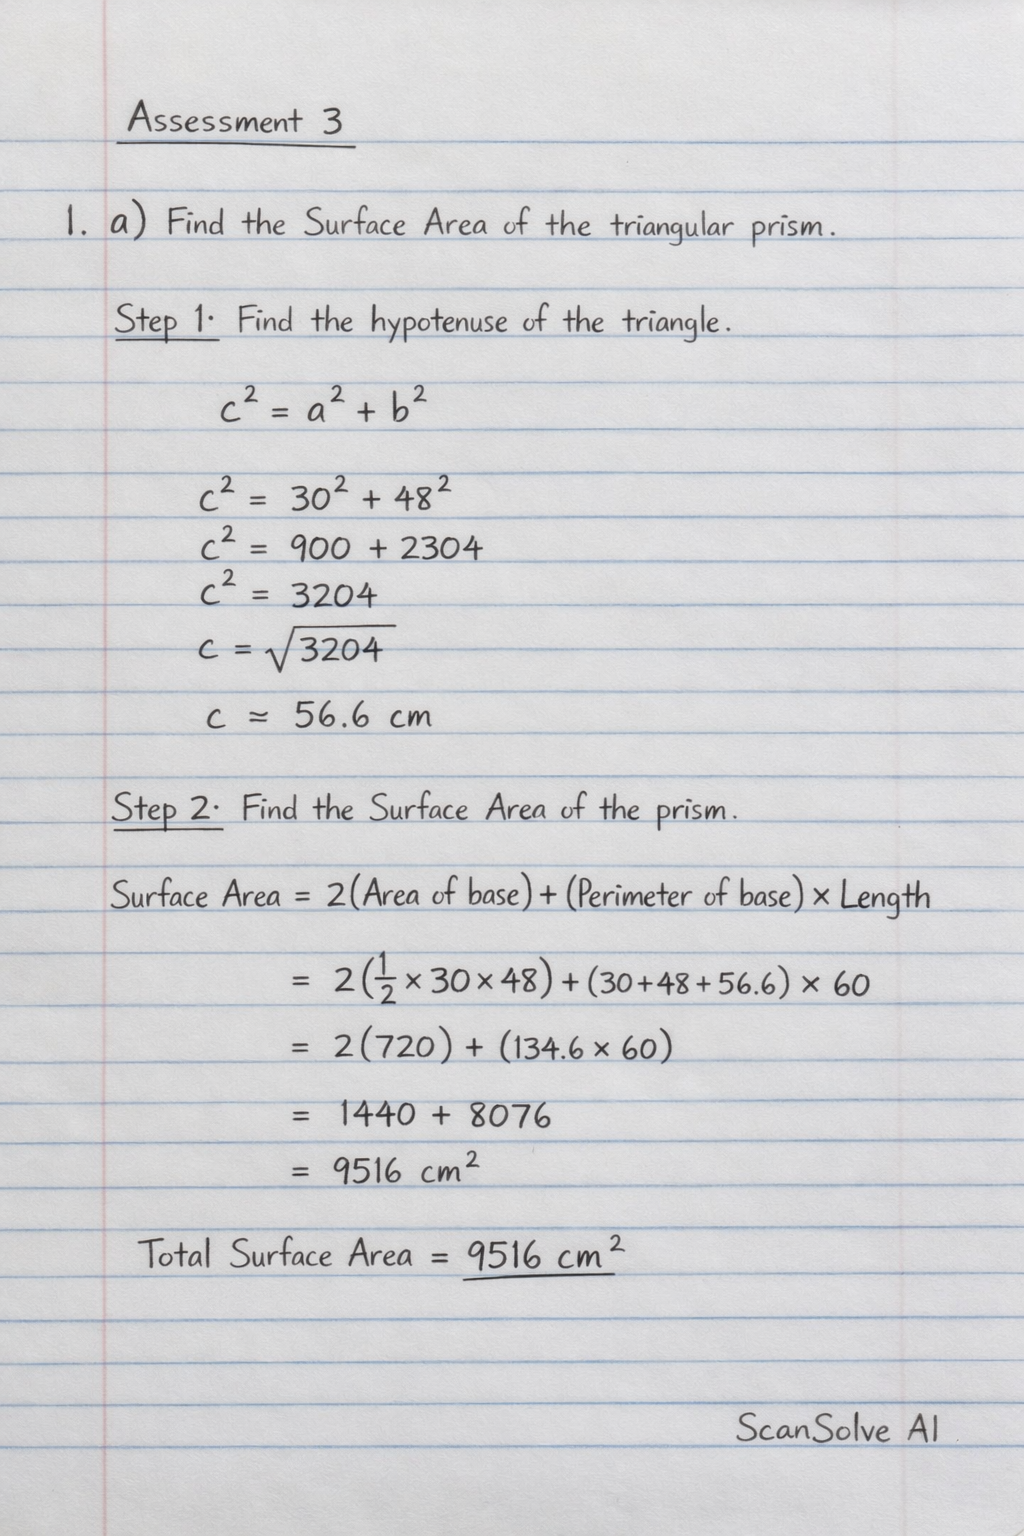 Assessment 3
1. a) Find the Surface Area of the triangular prism.
Step 1. Find the hypotenuse of the triangle.
c² = a² + b²
c² = 30² + 48²
c² = 900 + 2304
c² = 3204
c = √3204
c ≈ 56.6 cm
Step 2. Find the Surface Area of the prism.
Surface Area = 2(Area of base) + (Perimeter of base) × Length
= 2(½ × 30 × 48) + (30+48+56.6) × 60
= 2(720) + (134.6 × 60)
= 1440 + 8076
= 9516 cm²
Total Surface Area = 9516 cm²
ScanSolve AI